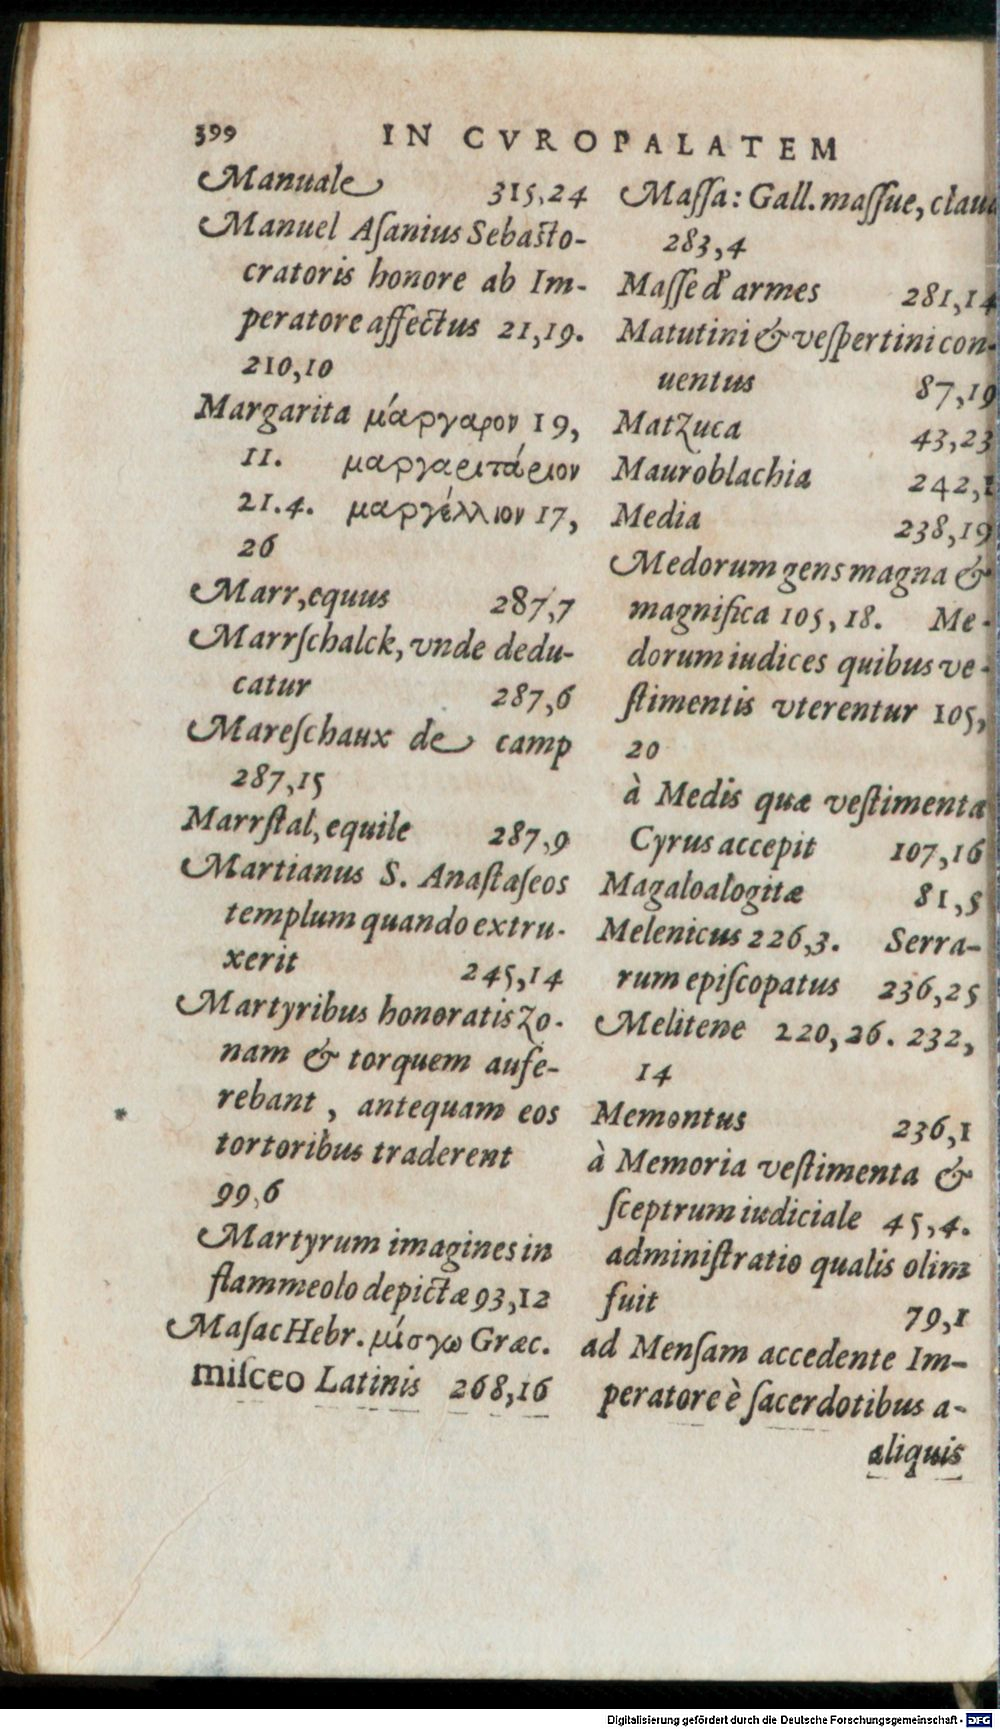 399 IN CVROPALATEM
Manuale 315,24
Manuel Aſanius Sebaſto-
cratoris honore ab Im-
peratore affectus 21,19.
210,10
Margarita μάργαρον 19,
11. μαργαριτάριον
21.4. μαργέλλιον 17,
26
Marr, equus 287,7
Marrſchalck, vnde dedu-
catur 287,6
Mareſchaux de camp
287,15
Marrſtal, equile 287,9
Martianus S. Anaſtaſeos
templum quando extru-
xerit 245,14
Martyribus honoratis Zo-
nam & torquem aufe-
rebant, antequam eos
tortoribus traderent
99,6
Martyrum imagines in
flammeolo depictæ 93,12
Maſac Hebr. μίσγω Græc.
miſceo Latinis 268,16
Maſſa: Gall. maſſue, claua
283,4
Maſſe d'armes 281,14
Matutini & veſpertini con-
uentus 87,19
MatZuca 43,23
Mauroblachia 242,1
Media 238,19
Medorum gens magna &
magnifica 105,18. Me-
dorum iudices quibus ve-
ſtimentis vterentur 105,
20
à Medis quæ veſtimenta
Cyrus accepit 107,16
Magaloalogitæ 81,5
Melenicus 226,3. Serra-
rum epiſcopatus 236,25
Melitene 220,26. 232,
14
Memontus 236,1
à Memoria veſtimenta &
ſceptrum iudiciale 45,4.
adminiſtratio qualis olim
fuit 79,1
ad Menſam accedente Im-
peratore è ſacerdotibus a-
aliquis
Digitalisierung gefördert durch die Deutsche Forschungsgemeinschaft - DFG